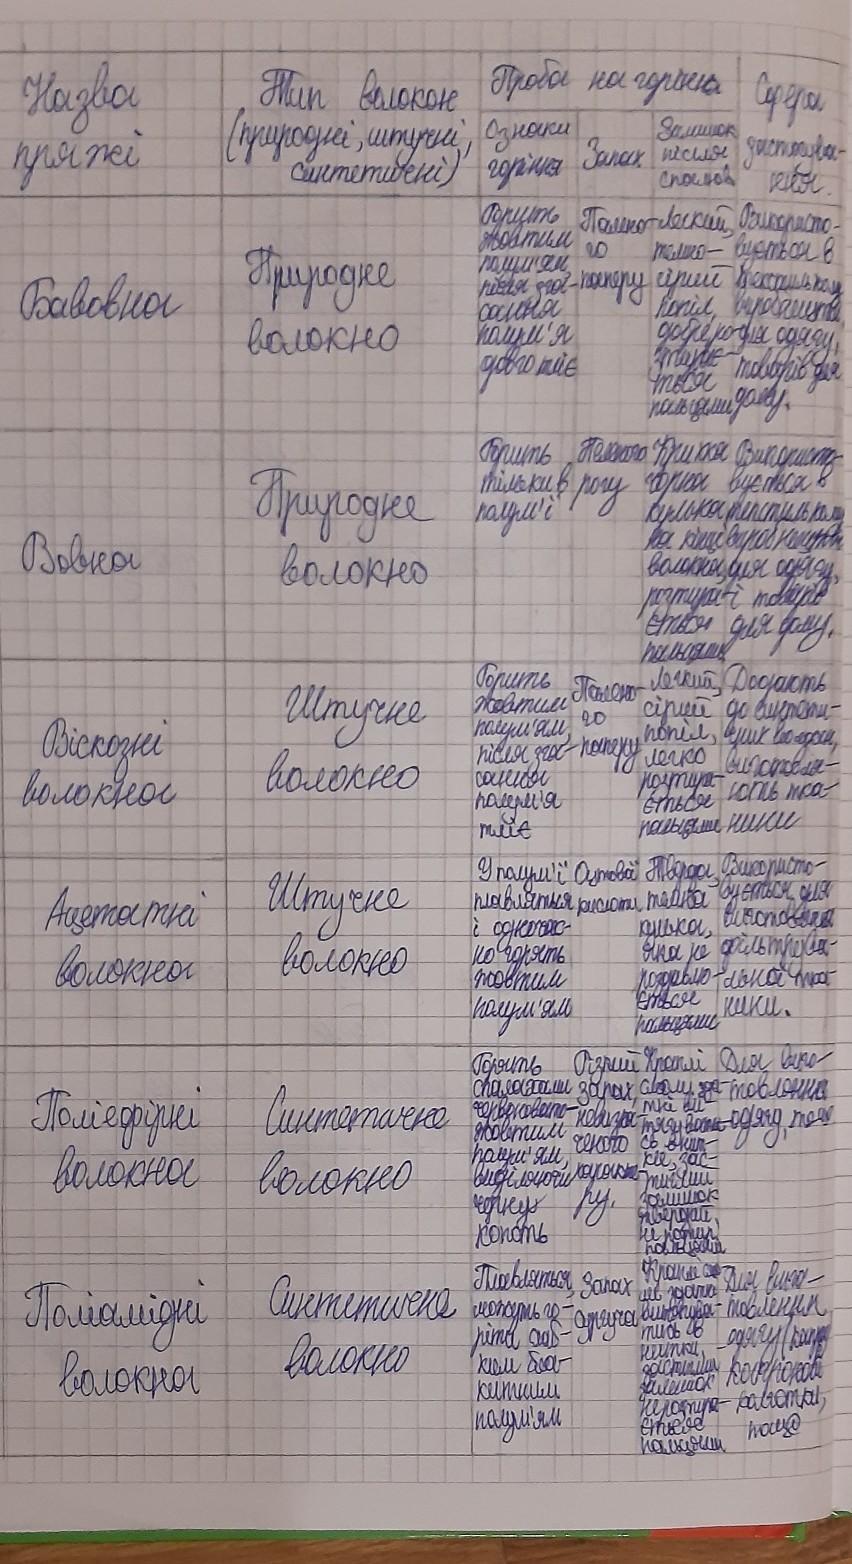 Назва
пряжі
Тип волокон
(природні, штучні,
синтетичні)
Проба на горіння
Ознаки
горіння
Запах
Залишок
після
спалюв.
Сфера
застосува-
ння.
Бавовна
Природне
волокно
Горить
жовтим
полум'ям,
після зга-
сання
полум'я
довго тліє
Палено-
го
паперу
Легкий,
темно-
сірий
попіл,
добре
ться
пальцями
Використо-
вується в
текстильному
виробництві
для одягу,
товарів для
дому.
Вовна
Природне
волокно
Горить
тільки в
полум'ї
Паленого
рогу
Крихка
чорна
кулька
на кінці
волокна,
розтира-
ється
пальцями
Використо-
вується в
текстильному
виробництві
для одягу,
і товарів
для дому.
Віскозні
волокна
Штучне
волокно
Горить
жовтим
полум'ям,
після зга-
сання
полум'я
тліє
Палено-
го
паперу
Легкий,
сірий
попіл,
легко
розтира-
ється
пальцями
Додають
до
інших волокон,
виготовля-
ють тка-
нини
Ацетатні
волокна
Штучне
волокно
У полум'ї
плавляться
і одночас-
но горять
жовтим
полум'ям
Оцтової
кислоти
Тверда,
темна
кулька,
яка не
роздавлю-
ється
пальцями
Використо-
вується для
виготовлення
фільтрува-
льної тка-
нини.
Поліефірні
волокна
Синтетичне
волокно
Горять
спалахами
червонувато-
жовтим
полум'ям,
виділяючи
чорну
копоть
Різний
запах,
невизна-
ченого
характе-
ру.
Краплі
сплаву зда-
тні ви-
тягувати-
сь в нит-
ки, зас-
тиглий
залишок
твердий,
не розтир.
пальцями
Для виго-
товлення
одягу, тощо
Поліамідні
волокна
Синтетичне
волокно
Плавляться,
можуть го-
ріти слаб-
ким бла-
китним
полум'ям
Запах
сургуча
Краплі
здатні
витягува-
тись в
нитки,
застиглий
залишок
не розтира-
ється
пальцями
Для виго-
товлення
одягу
колготки,
тощо